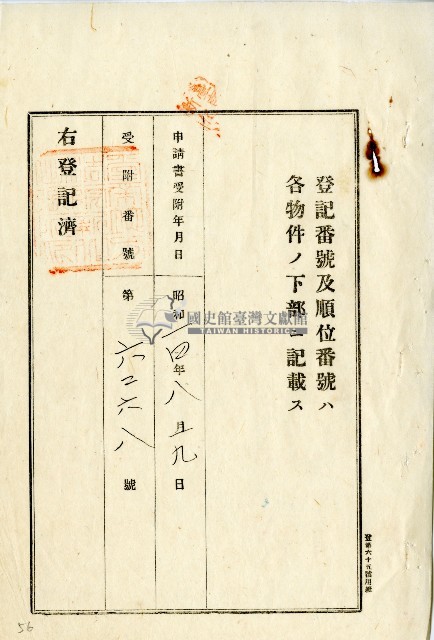 登記番號及順位番號ハ
各物件ノ下部ニ記載ス
申請書受附年月日 昭和一四年八月九日
受附番號 第六二六八號
右登記濟
登第六十五號用紙
國史館臺灣文獻館
TAIWAN HISTORICA
56